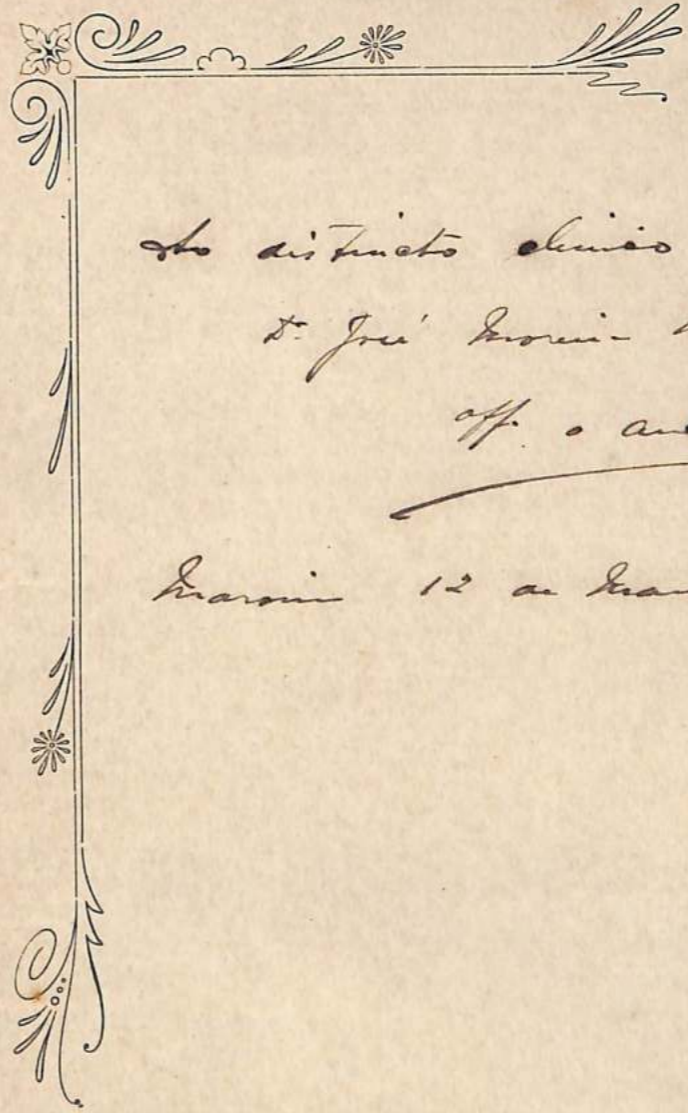 Ao distincto clinico
Dr. José Moreira
off. o au
Maroim 12 de Mar